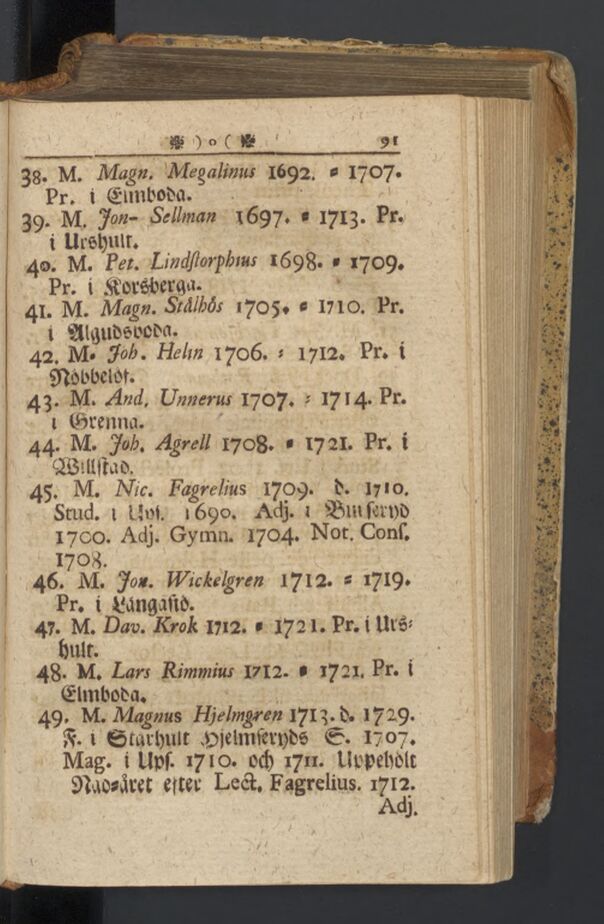 ❉ ) o ( ❉ 91
38. M. Magn. Megalinus 1692. = 1707.
Pr. i Elmboda.
39. M. Jon- Sellman 1697. = 1713. Pr.
i Urshult.
40. M. Pet. Lindstorphius 1698. = 1709.
Pr. i Korsberga.
41. M. Magn. Stålhös 1705. = 1710. Pr.
i Algudsboda.
42. M. Joh. Helin 1706. = 1712. Pr. i
Nöbbelöf.
43. M. And. Unnerus 1707. = 1714. Pr.
i Grenna.
44. M. Joh. Agrell 1708. = 1721. Pr. i
Willstad.
45. M. Nic. Fagrelius 1709. d. 1710.
Stud. i Ups. 1690. Adj. i Bellseryd
1700. Adj. Gymn. 1704. Not. Cons.
1708.
46. M. Jon. Wickelgren 1712. = 1719.
Pr. i Långasiö.
47. M. Dav. Krok 1712. = 1721. Pr. i Urs=
hult.
48. M. Lars Rimmius 1712. = 1721. Pr. i
Elmboda.
49. M. Magnus Hjelmgren 1713. d. 1729.
F. i Starhult Hjelmseryds S. 1707.
Mag. i Ups. 1710. och 1711. Uppehölt
Nad=året efter Lect. Fagrelius. 1712.
Adj.